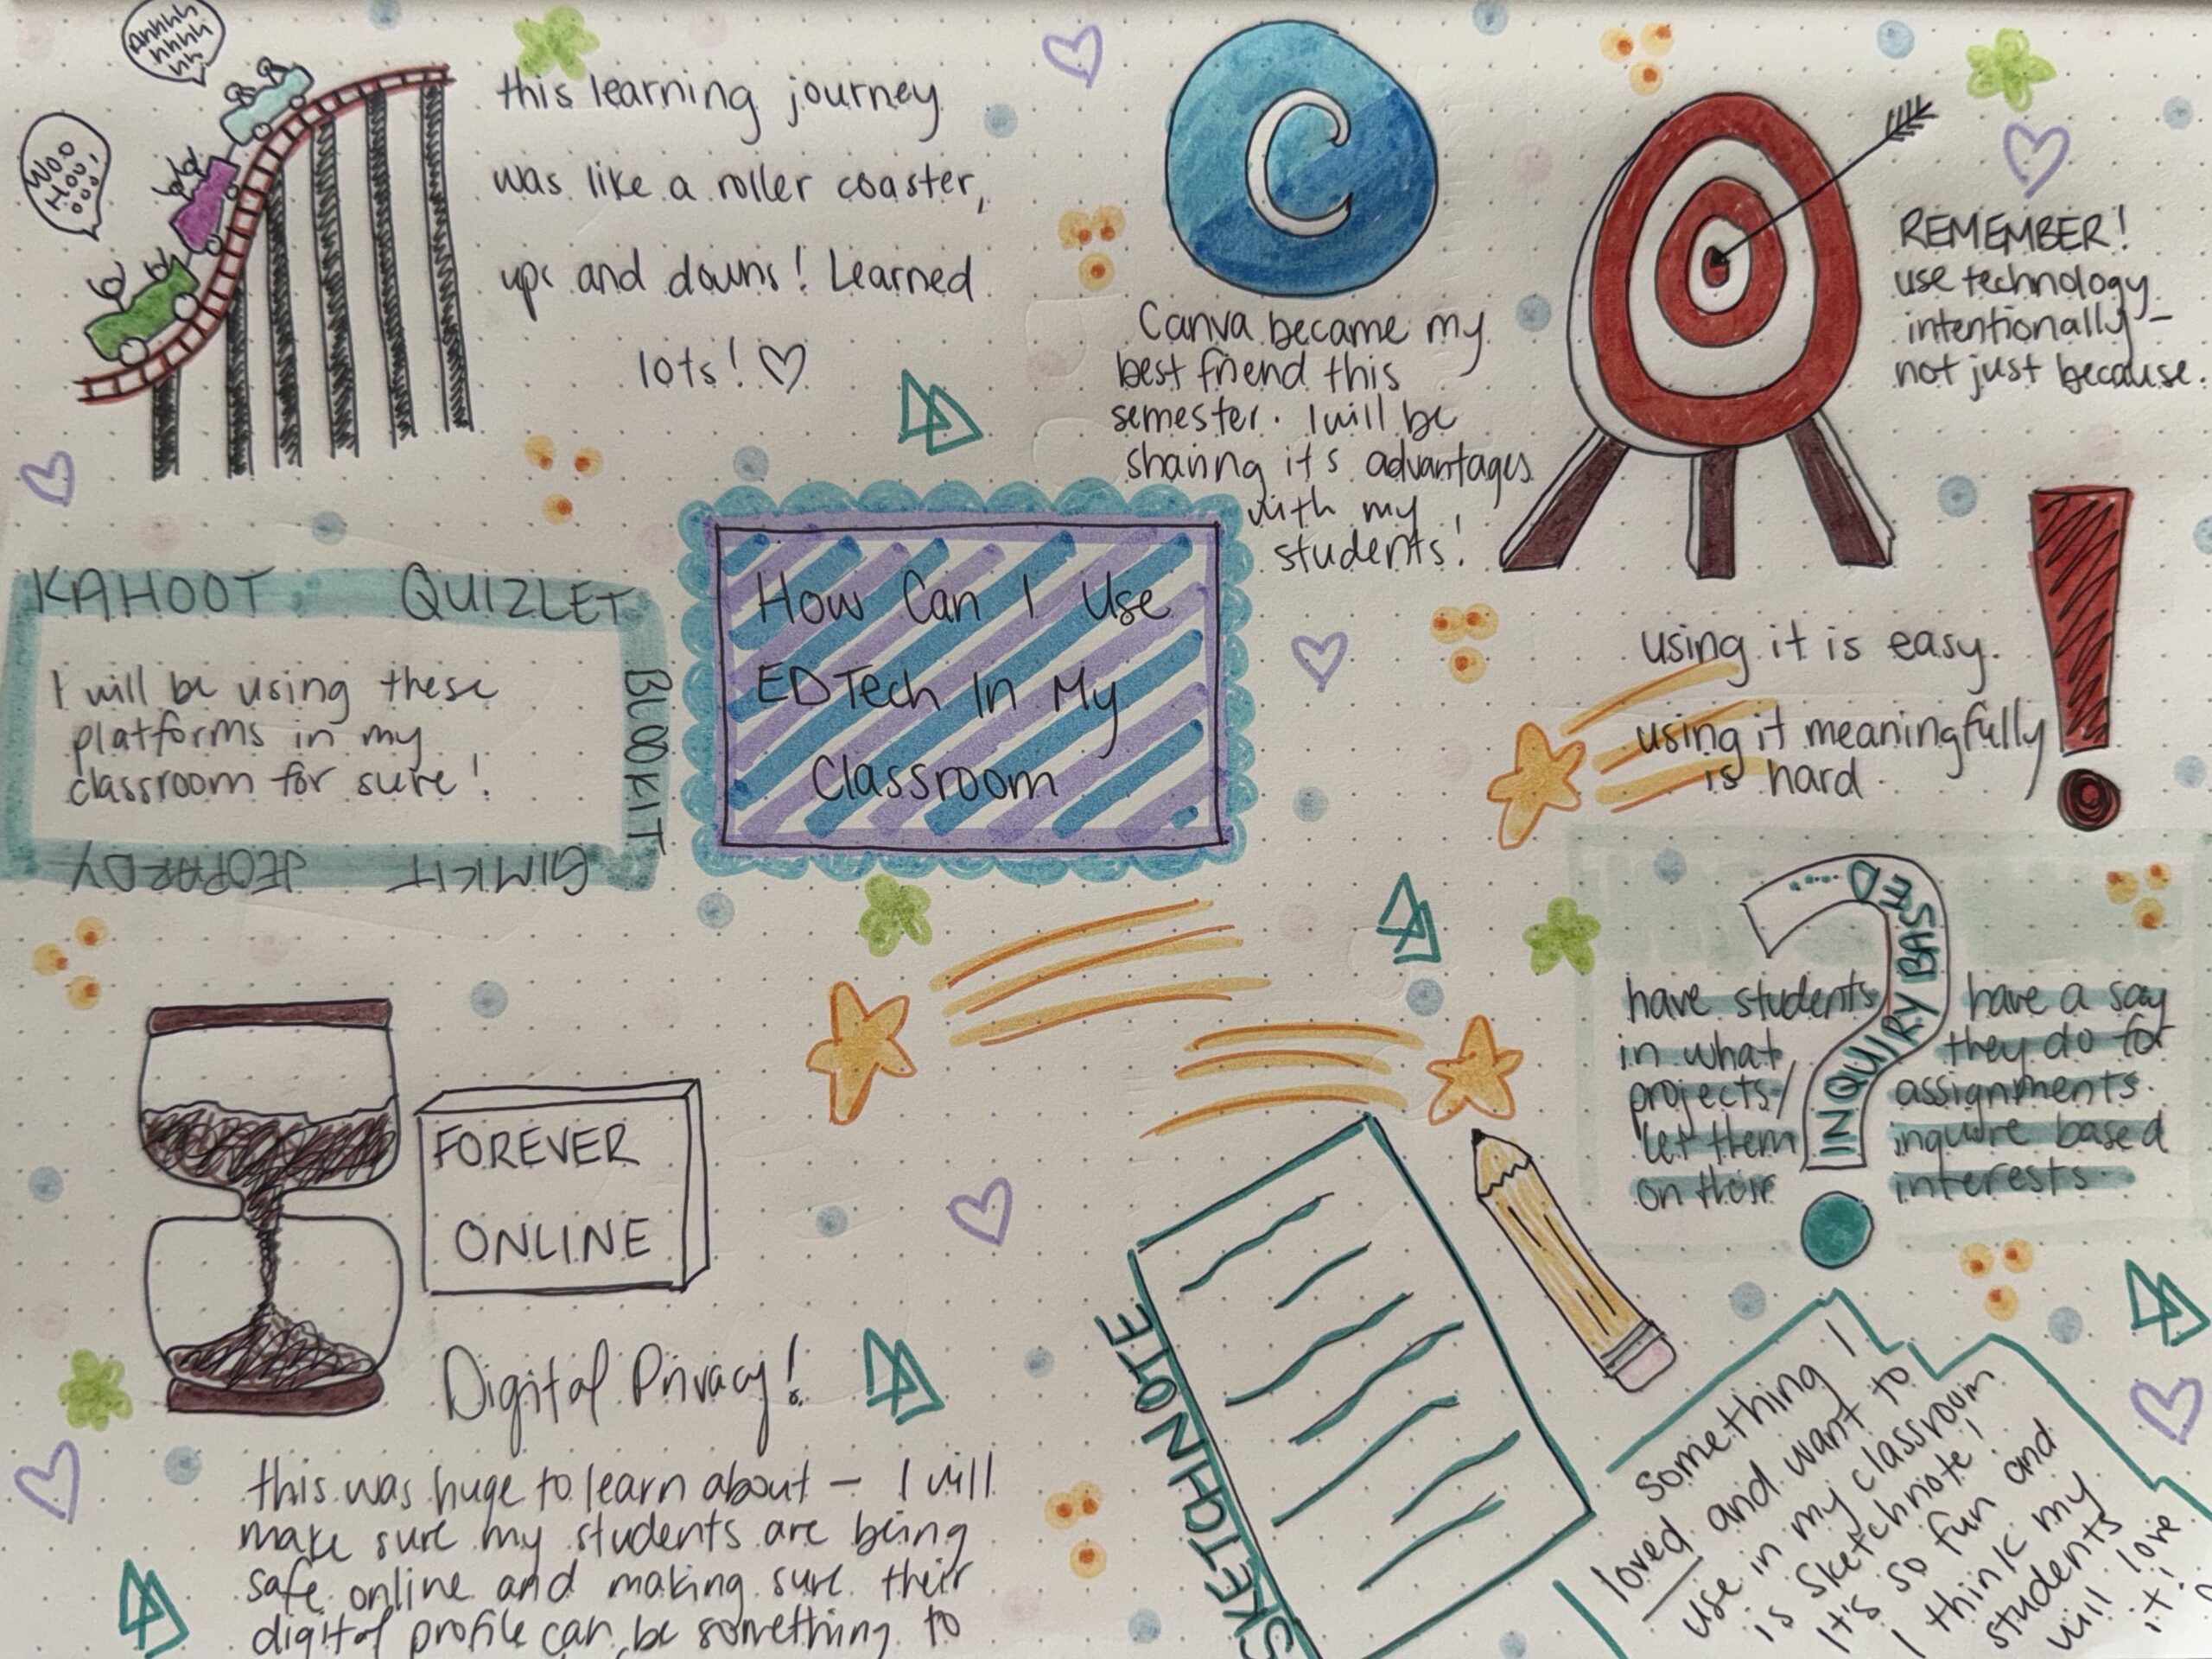 Ahhhh
hhhh
hh
Woo
Hoo!
this learning journey
was like a roller coaster,
ups and downs! Learned
lots!
C
Canva became my
best friend this
semester. I will be
sharing it's advantages
with my
students!
REMEMBER!
use technology
intentionally –
not just because.
using it is easy.
using it meaningfully
is hard.
KAHOOT QUIZLET
BLOOKIT
GIMKIT JEOPARDY
I will be using these
platforms in my
classroom for sure!
How Can I Use
EDTech In My
Classroom
INQUIRY BASED
have students have a say
in what they do for
projects/ assignments.
let them inquire based
on their interests.
FOREVER
ONLINE
Digital Privacy!
this was huge to learn about – I will
make sure my students are being
safe online and making sure their
digital profile can be something to
SKETCHNOTE
something I
loved and want to
use in my classroom
is Sketchnote!
It's so fun and
I think my
students
will love
it!